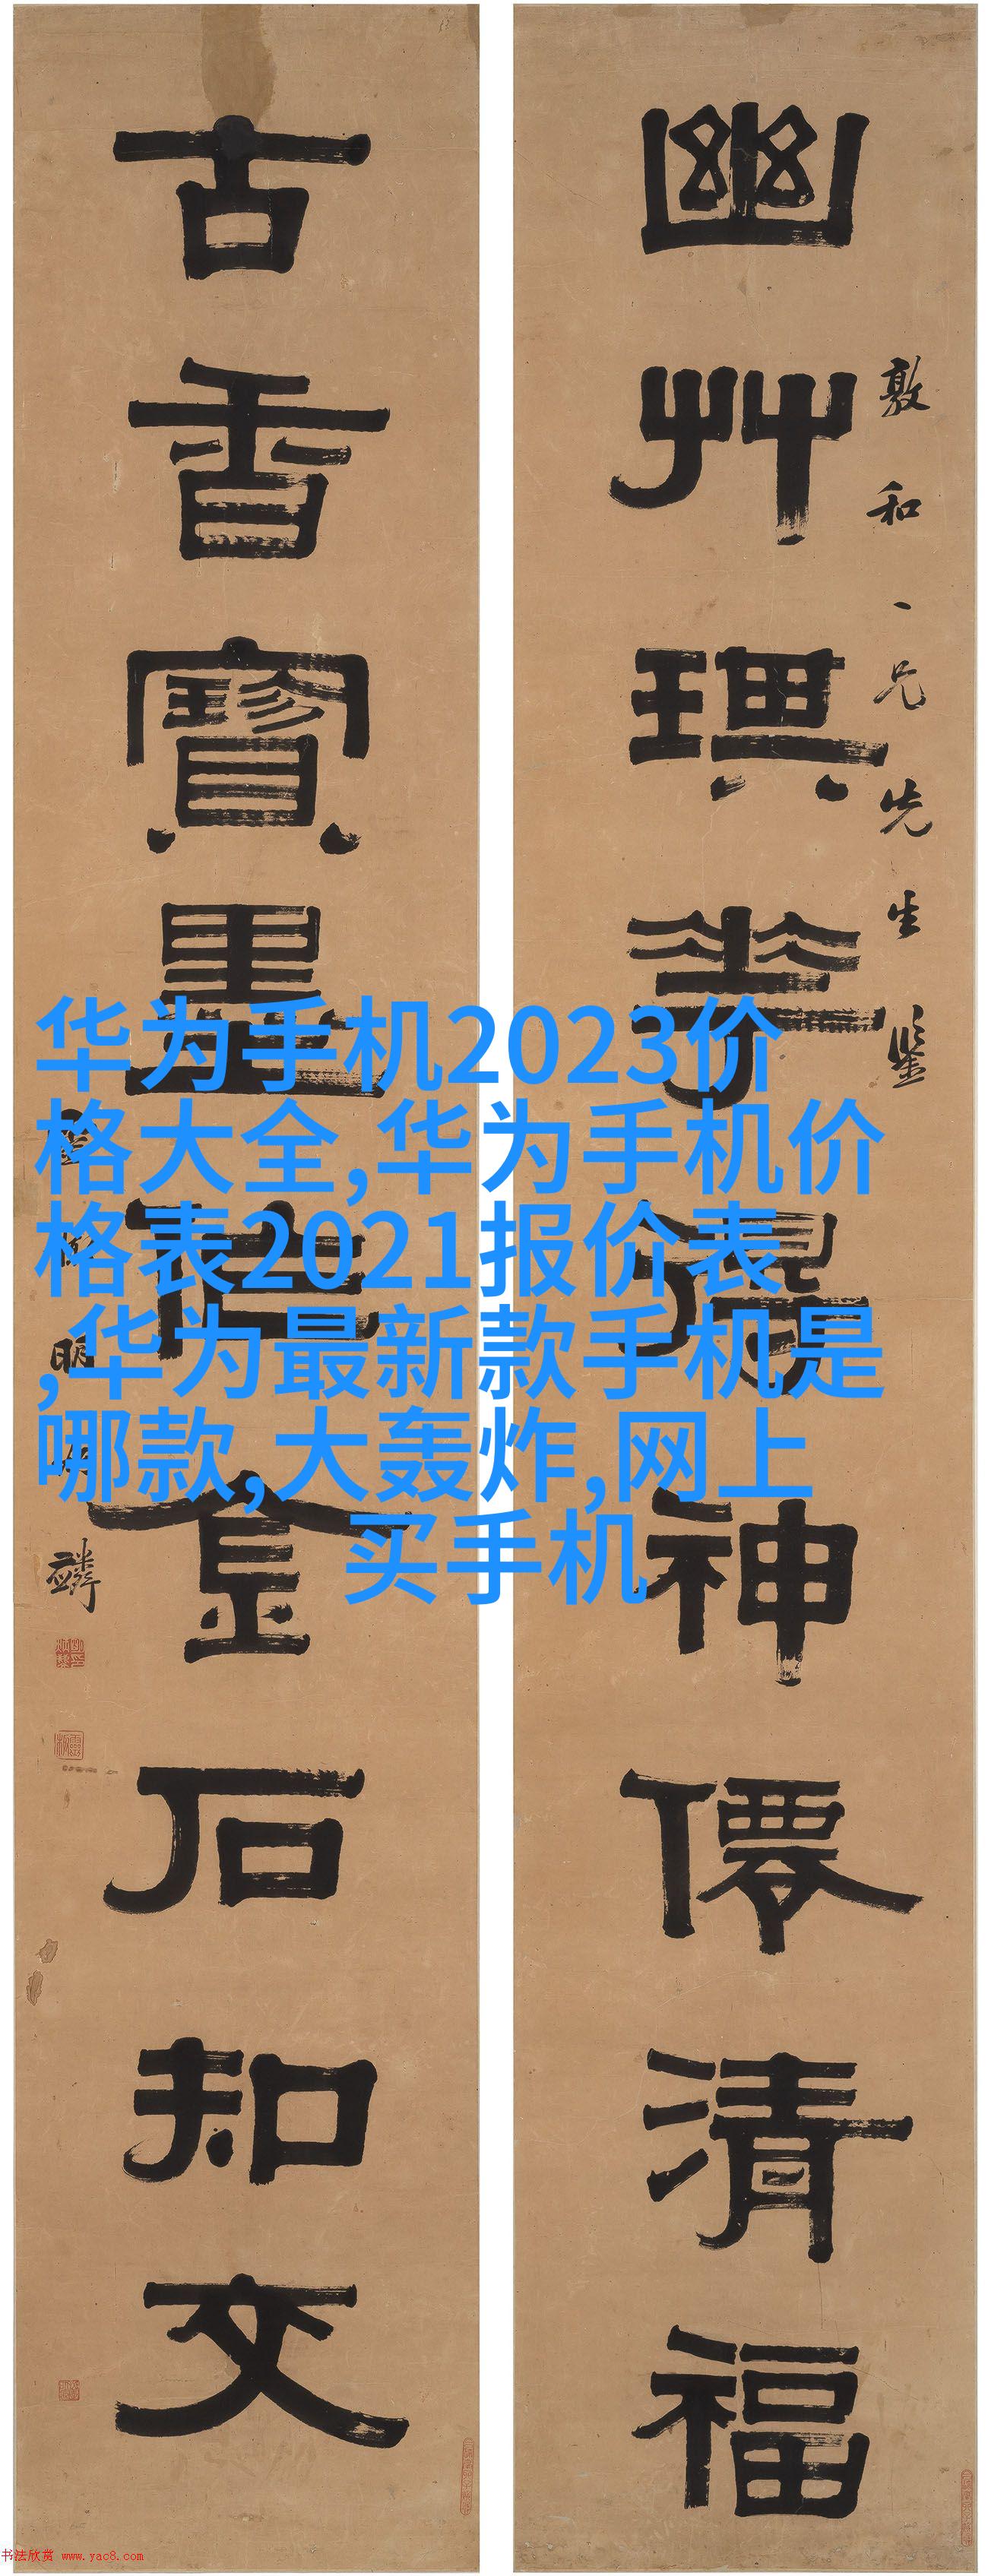 幽艸琪華得神僊清福
敦和一兄先生鑒
古香寶墨金石知交
明麟
华为手机2023价
格大全,华为手机价
格表2021报价表
,华为最新款手机是
哪款,大轰炸,网上
买手机
书法欣赏 www.yac8.com